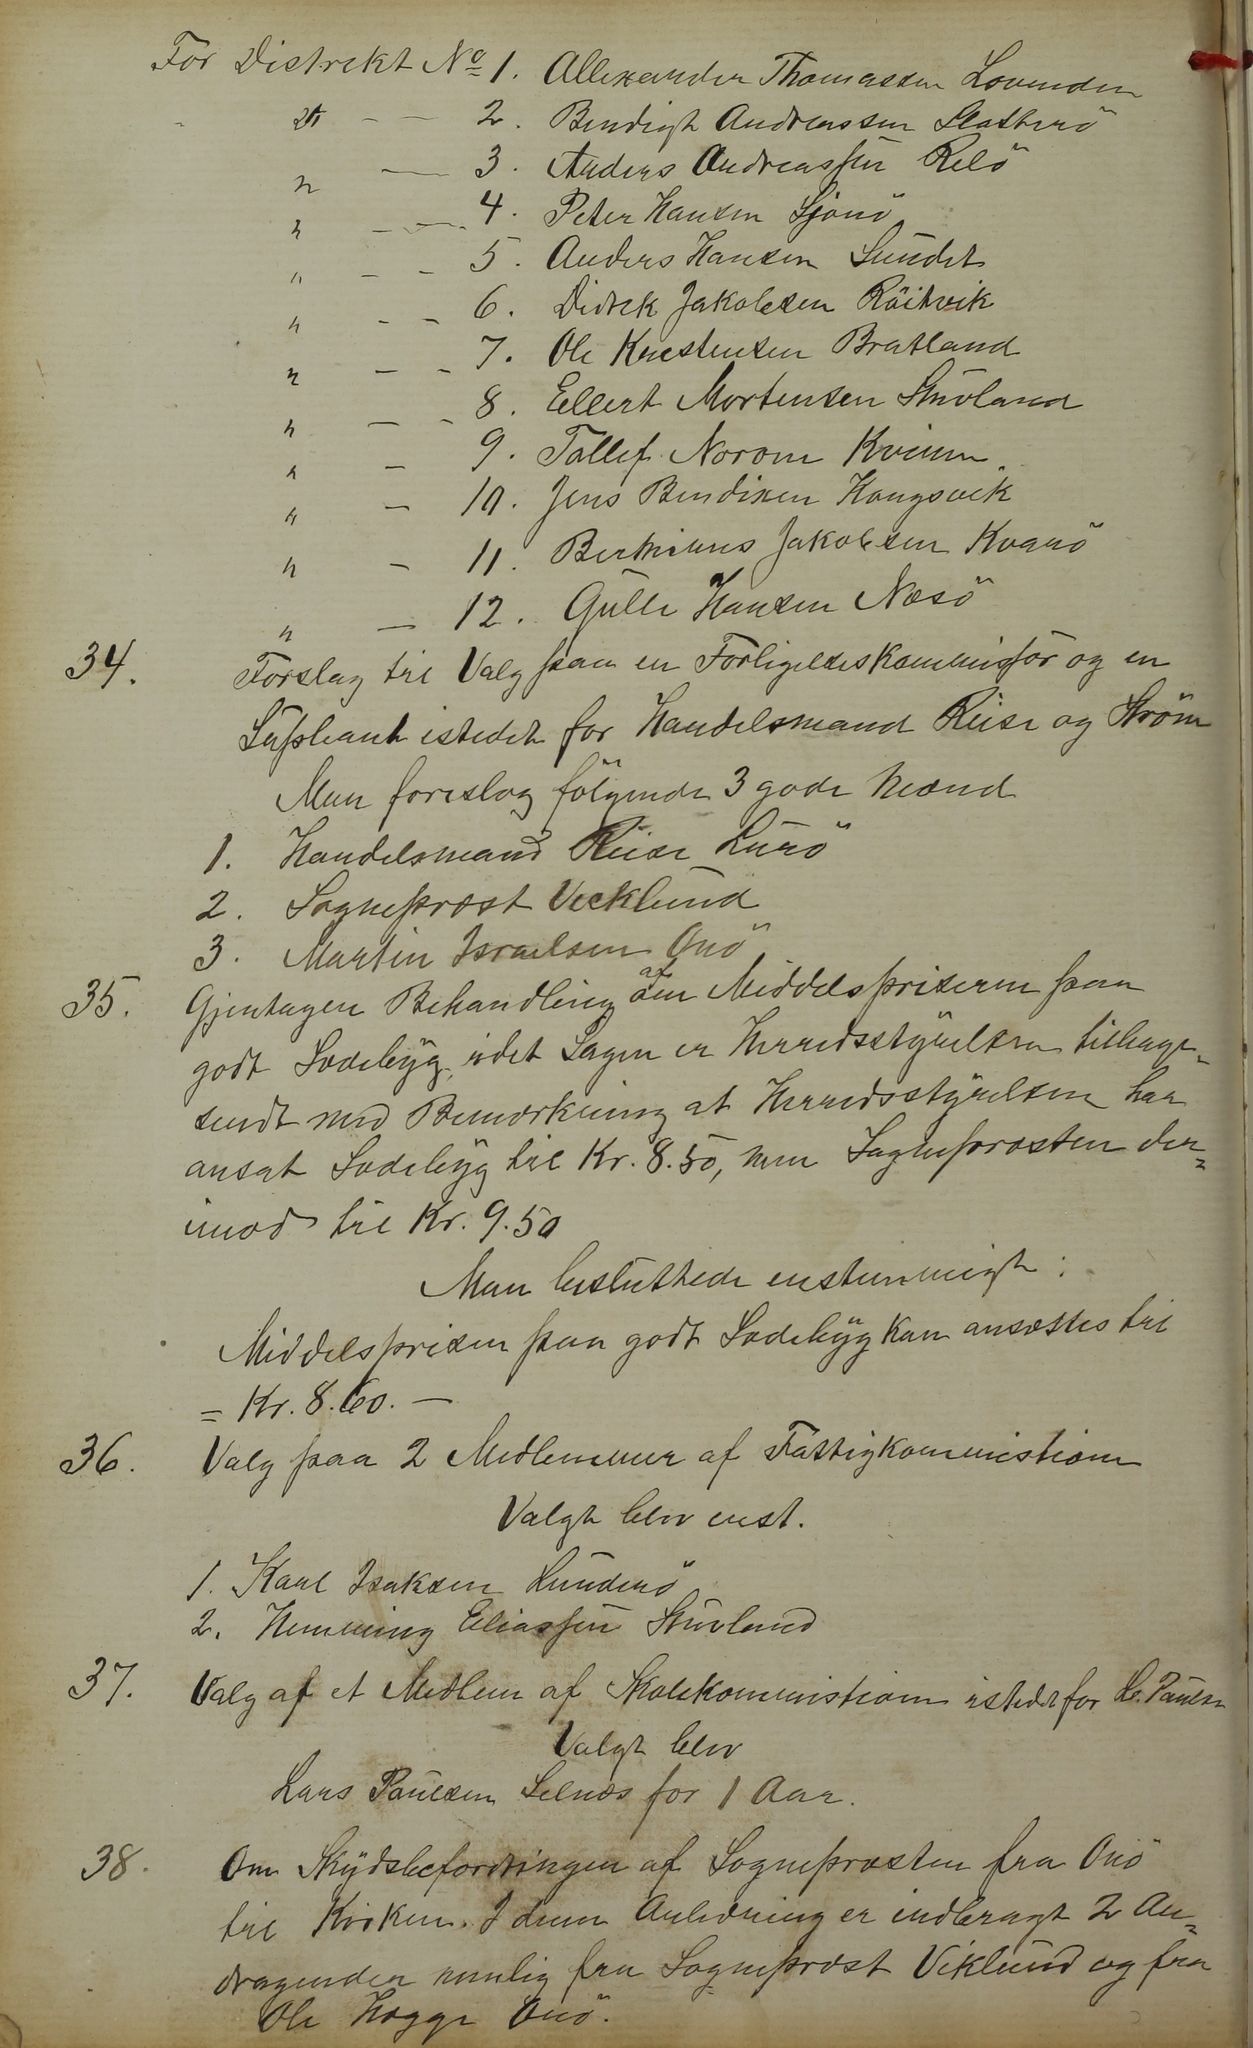 For Distrekt No 1. Allexander Thomassen Lovunden
" — — 2. Bendigt Andreassen Sletterö
" — 3. Anders Andreassen Relö
" — — 4. Peter Hansen Sjonö
" — — 5. Anders Hansen Sundet
" — — 6. Didrek Jakobsen Röitvik
" — — 7. Ole Krestensen Bratland
" — — 8. Ellert Mortensen Stuvland
" — 9. Tollef Norom Kvium
" — 10. Jens Bendixen Kongsvik
" — 11. Berhinus Jakobsen Kvarö
" — 12. Gulle Hansen Nesö
34. Forslag til Valg paa en Forligelseskommissör og en
Supleant istedet for Handelsmand Riise og Ström
Man foreslog fölgende 3 gode Mænd
1. Handelsmand Riise Lurö
2. Sogneprest Vecklund
3. Martin Israelsen Onö
35. Gjentagen Behandling af om Middelsprisern paa
godt Sædebyg, idet Sagen er Herredsstyrelsen tilbage-
sendt med Bemærkning at Herredsstyrelsen har
ansat Sædebyg til Kr. 8.50, men Sogneprœsten der-
imod til Kr. 9.50
Man besluttede enstemmigt:
Middelsprisen paa godt Sædebyg kan ansættes til
= Kr. 8.60. —
36. Valg paa 2 Medlemmer af Fattigkommistionen
Valgt blev enst.
1. Karl Isaksen Hunderö
2. Hemming Eliassen Stuvland
37. Valg af et Medlem af Skolekommistionen istedet for L. Paulsen
Valgt blev
Lars Paulsen Selnæs for 1 Aar.
38. Om Skydsbefordringen af Sogneprœsten fra Onö
til Kirken. I denne Anledning er indbragt 2 An-
dragender nemlig fra Sogneprœst Viklund og fra
Ole Hogge Onö.